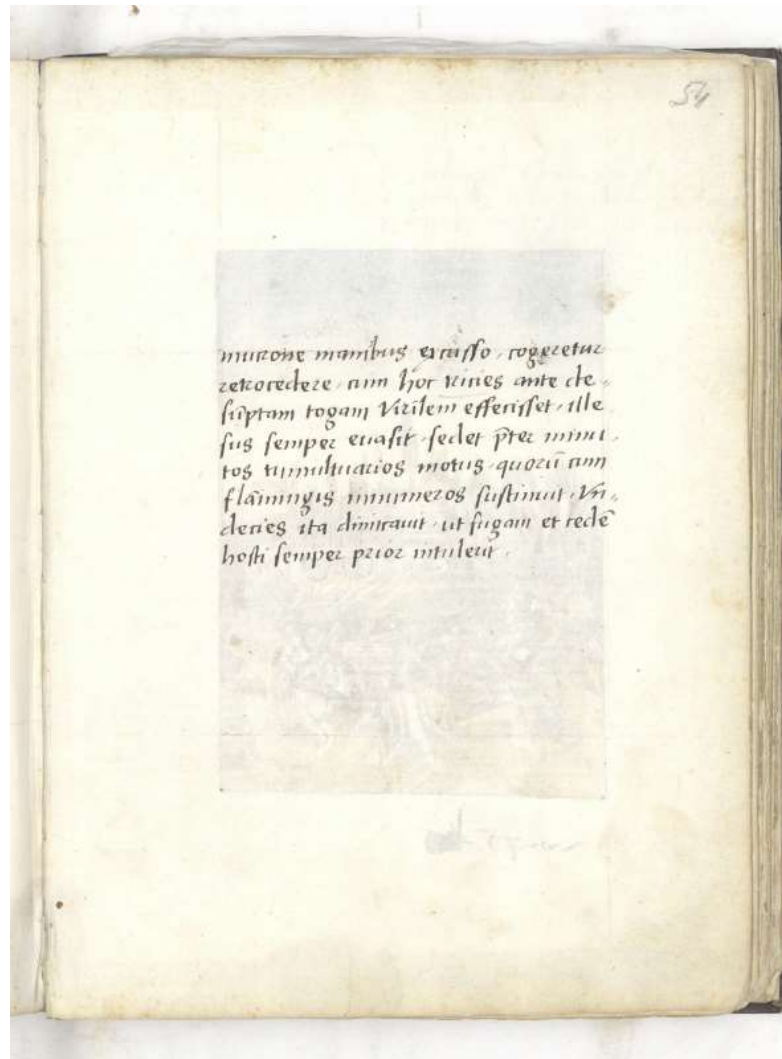 54
mucrone manibus excusso, cogeretur
retrocedere, cum hoc vicies ante de„
sūptam togam Virilem effecisset, ille
sus semper evasit, sed et p̄ter minu,
tos tumultuarios motus, quorū cum
flāmingis innumeros sustinuit, Vn„
decies ita dimicavit, ut fugam et cedē
hosti semper prior intulerit,